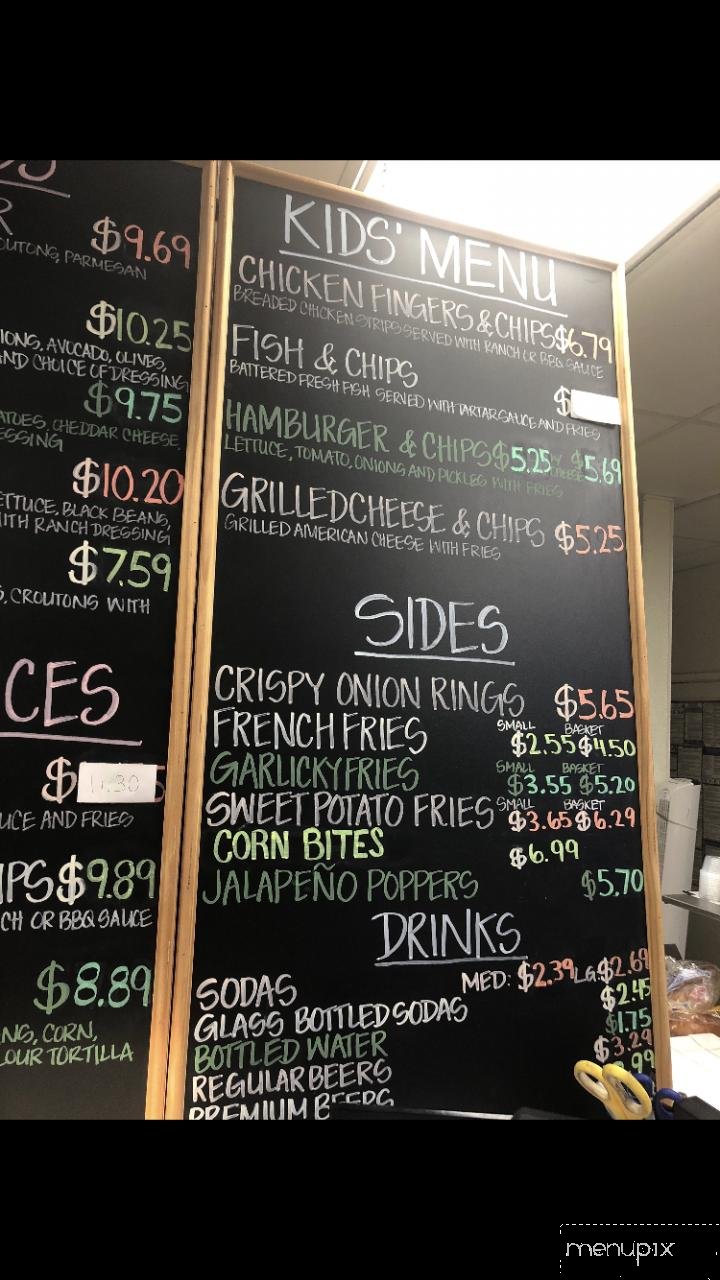 $9.69
OUTONS, PARMESAN
$10.25
IONS, AVOCADO, OLIVES,
ND CHOICE OF DRESSING
$9.75
ATOES, CHEDDAR CHEESE,
ESSING
$10.20
ETTUCE, BLACK BEANS,
ITH RANCH DRESSING
$7.59
S, CROUTONS WITH
CES
$11.30
UCE AND FRIES
IPS $9.89
CH OR BBQ SAUCE
$8.89
NS, CORN,
LOUR TORTILLA
KIDS' MENU
CHICKEN FINGERS & CHIPS $6.79
BREADED CHICKEN STRIPS SERVED WITH RANCH OR BBQ SAUCE
FISH & CHIPS
BATTERED FRESH FISH SERVED WITH TARTAR SAUCE AND FRIES $
HAMBURGER & CHIPS $5.25 W/ CHEESE $5.69
LETTUCE, TOMATO, ONIONS AND PICKLES WITH FRIES
GRILLED CHEESE & CHIPS $5.25
GRILLED AMERICAN CHEESE WITH FRIES
SIDES
CRISPY ONION RINGS $5.65
FRENCH FRIES SMALL $2.55 BASKET $4.50
GARLICKY FRIES SMALL $3.55 BASKET $5.20
SWEET POTATO FRIES SMALL $3.65 BASKET $6.29
CORN BITES $6.99
JALAPEÑO POPPERS $5.70
DRINKS
SODAS MED: $2.39 LG: $2.69
GLASS BOTTLED SODAS $2.45
BOTTLED WATER $1.75
REGULAR BEERS $3.24
PREMIUM BEERS .99
menupix